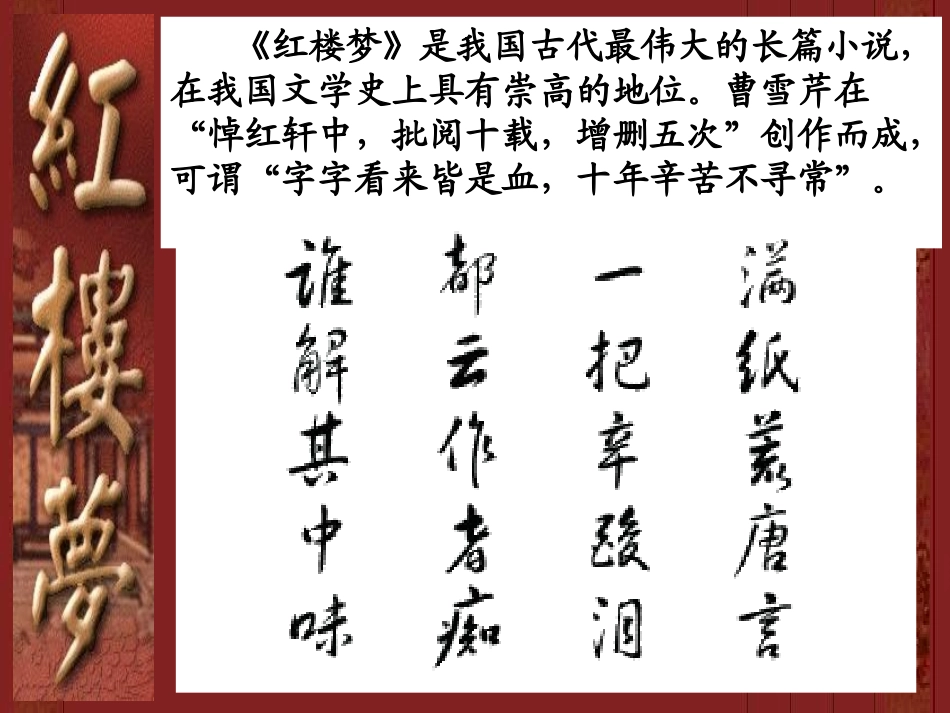 紅樓夢
《红楼梦》是我国古代最伟大的长篇小说，
在我国文学史上具有崇高的地位。曹雪芹在
“悼红轩中，批阅十载，增删五次”创作而成，
可谓“字字看来皆是血，十年辛苦不寻常”。
满纸荒唐言
一把辛酸泪
都云作者痴
谁解其中味